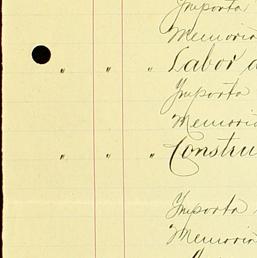 Importa
Memoria
" " " Labor d
Importa
Memoria
" " " Constru
Importa
Memoria